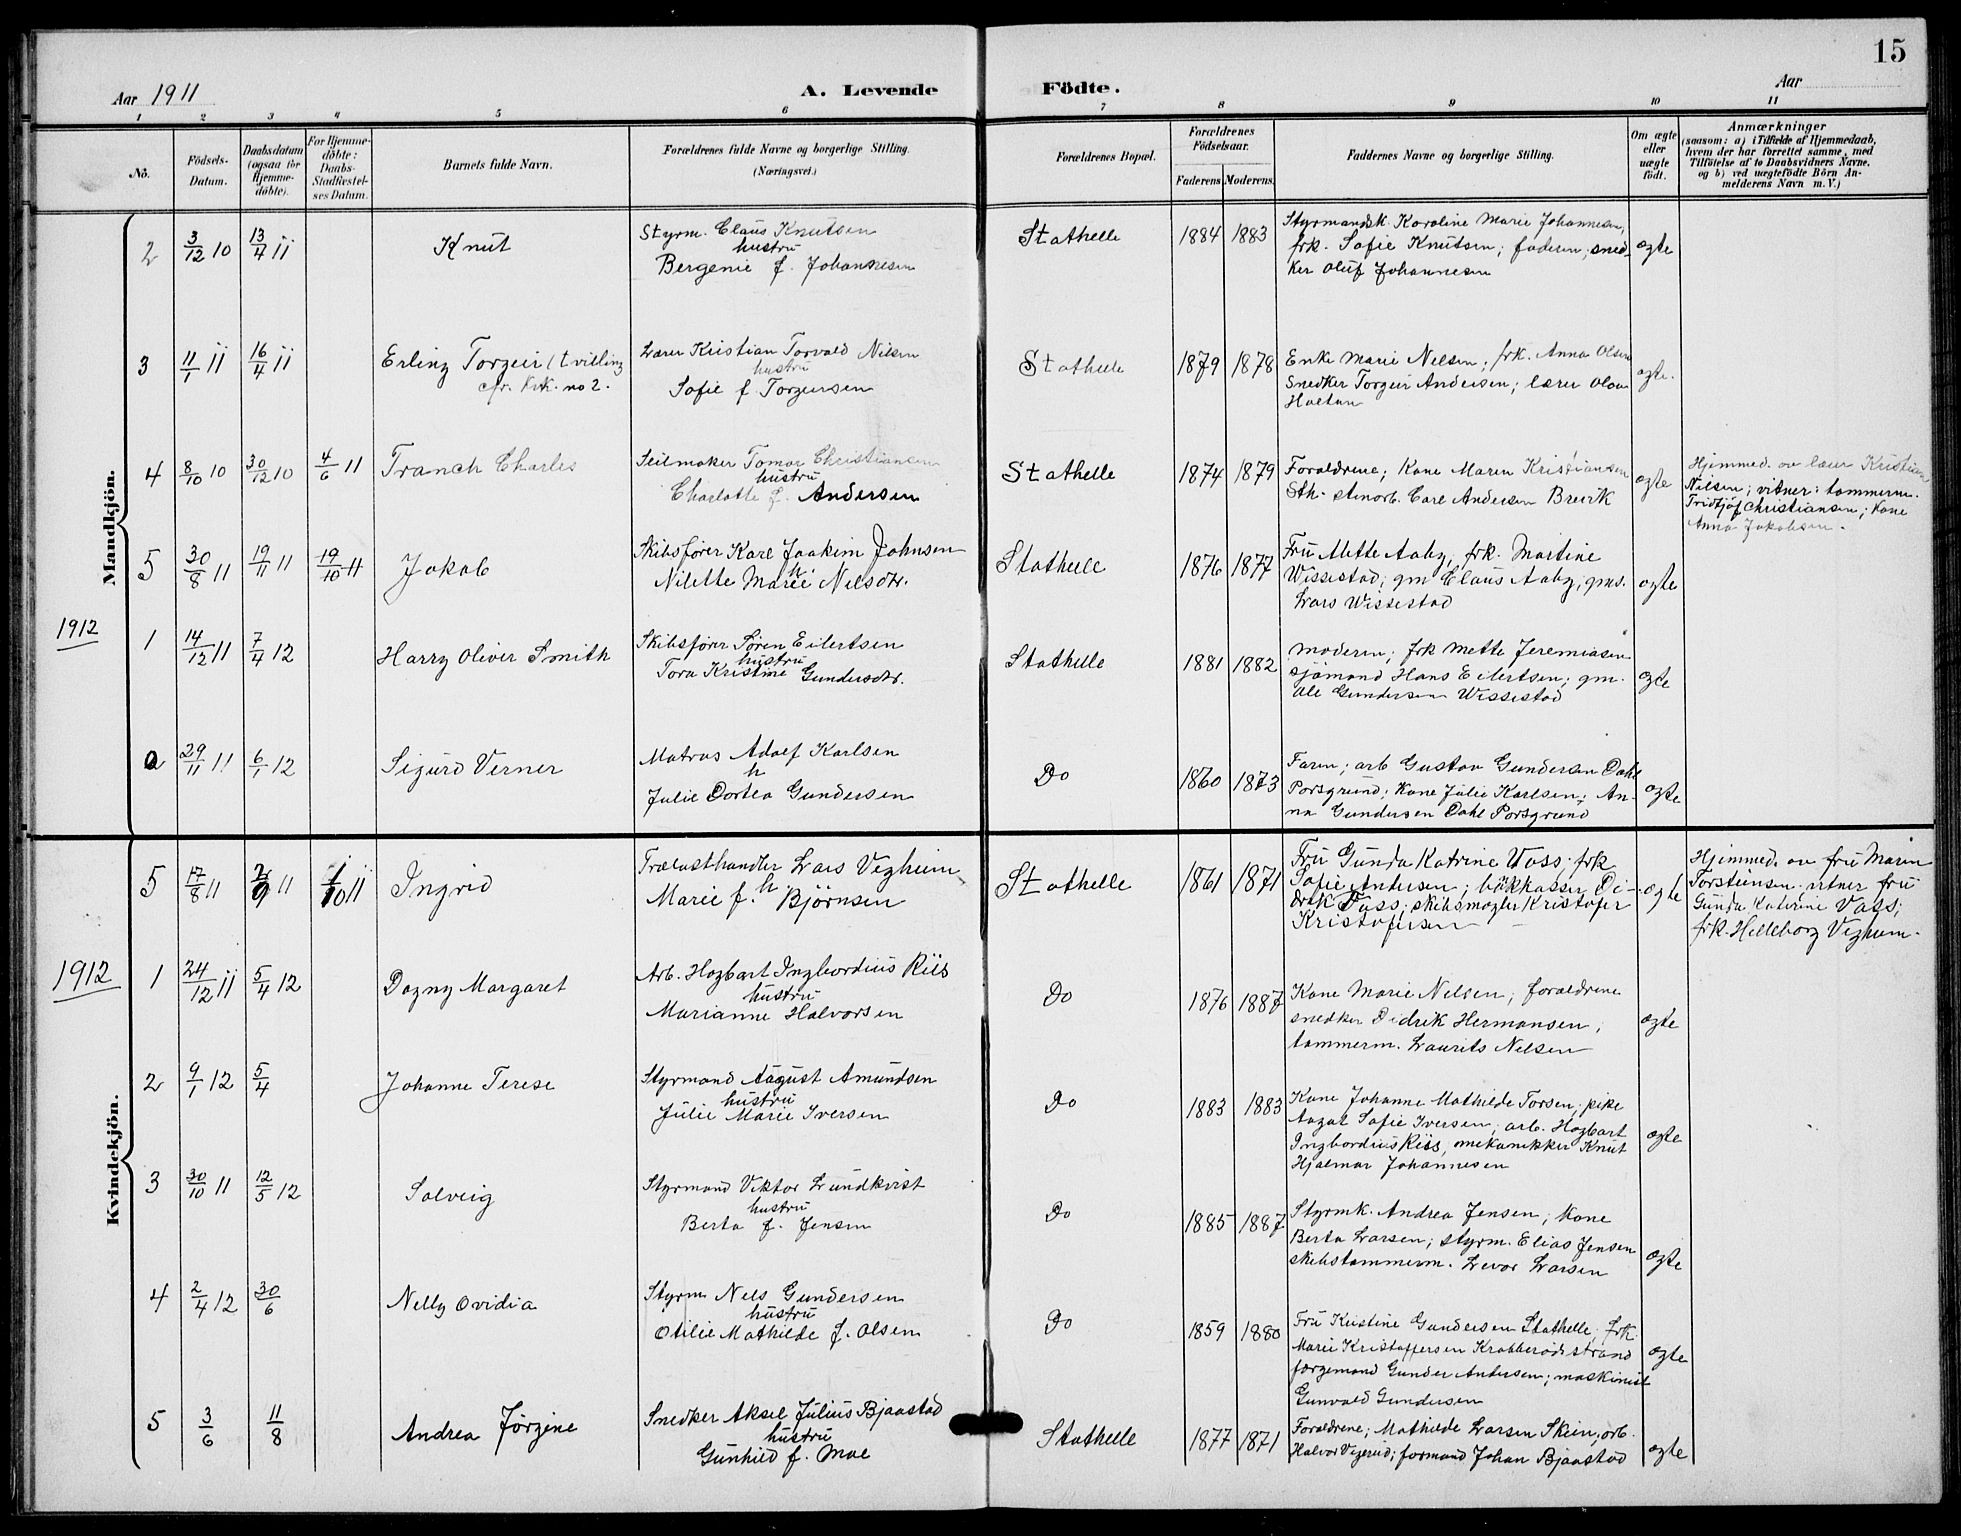 15
Aar 1911
A. Levende Födte.
Aar
1 2 3 4 5 6 7 8 9 10 11
No.
Födsels-Datum.
Daabsdatum (ogsaa for Hjemme-döbte).
For Hjemme-döbte: Daabs-Stadfæstel-ses Datum.
Barnets fulde Navn.
Forældrenes fulde Navne og borgerlige Stilling. (Næringsvei.)
Forældrenes Bopæl.
Forældrenes Födselsaar.
Faderens Moderens.
Faddernes Navne og borgerlige Stilling.
Om ægte eller uægte födt.
Anmærkninger
(saasom: a) i Tilfælde af Hjemmedaab, hvem der har forrettet samme, med Tilföielse af to Daabsvidners Navne, og b) ved uægtefödte Börn An-melderens Navn m. V.)
Mandkjön.
2 3/12 10 13/4 11 Knut
Styrm. Claus Knutsen
hustru
Bergenie f. Johannesen
Stathelle 1884 1883
Styrmandsk. Karoline Marie Johannesen,
frk. Sofie Knutsen; faderen, sned-
ker Oluf Johannesen
ægte
3 11/1 11 16/4 11 Erling Torgeir (tvilling
cfr. kvk. no 2.
Lærer Kristian Torvald Nilsen
hustru
Sofie f. Torgersen
Stathelle 1879 1878
Enke Marie Nelsen; frk. Anna Olsen
Snedker Torgeir Andersen; lærer Olav
Haltan
ægte.
4 8/10 10 30/12 10 4/6 11 Tranch Charles
Seilmaker Tomar Christiansen
hustru
Charlotte f. Andersen
Stathelle 1874 1879
Forældrene; Kone Maren Kristiansen
Sth. stenarb. Carl Andersen Brevik
ægte
Hjemmed. av lærer Kristian
Nilsen; vitner: tømmerm.
Fridtjöf Christiansen; Kone
Anna Jakobsen.
5 30/8 11 19/11 11 19/10 11 Jakob
Skibsfører Karl Joakim Johnsen
h.
Nilette Marie Nilsdtr.
Stathelle 1876 1877
Fru Mette Aaby, frk. Martine
Wissestad; gm Claus Aaby; gms.
Lars Wissestad
ægte
1912
1 14/12 11 7/4 12 Harry Oliver Smith
Skibsfører Søren Eilertsen
hustru
Tora Kristine Gundersdtr.
Stathelle 1881 1882
Moderen; frk Mette Jeremiasen
sjømand Hans Eilertsen; gm.
Ole Gundersen Wissestad
ægte
2 29/11 11 6/1 12 Sigurd Verner
Matros Adolf Karlsen
h
Julie Dortea Gundersen
Do 1860 1873
Faren; arb Gustav Gundersen Dahl
Porsgrund; Kone Julie Karlsen; An-
na Gundersen Dahl Porsgrund
ægte
Kvindekjön.
5 17/8 11 11 1/10 11 Ingrid
Trælasthandler Lars Vegheim
h.
Marie f. Bjørnsen
Stathelle 1861 1871
Fru Gunda Katrine Vass; frk
Sofie Andersen; Di-
drik Vass; skibsmægler Kristofer
Kristofersen
ægte
Hjemmed. av fru Maren
Torstensen vitner fru
Gunda Katerine Vass;
frk. Helleborg Vegheim.
1912
1 24/12 11 5/4 12 Dagny Margaret
Arb. Hagbart Ingbordius Riis
hustru
Marianne Halvorsen
Do 1876 1887
Kone Marie Nelsen; forældrene
snedker Didrik Hermansen,
tømmerm. Laurits Nelsen
ægte
2 9/1 12 5/4 Johanne Terese
Styrmand August Amundsen
hustru
Julie Marie Iversen
Do 1883 1883
Kone Johanne Mathilde Torsen; pike
Aagot Sofie Iversen; arb. Hagbart
Ingbordius Riis, mekanikker Knut
Hjalmar Johannesen
ægte
3 30/10 11 12/5 12 Solveig
Styrmand Viktor Lundkvist
hustru
Berta f. Jensen
Do 1885 1887
Styrmk. Andrea Jensen; Kone
Berta Larsen; styrm. Elias Jensen
skibstømmerm. Levor Larsen
ægte
4 2/4 12 30/6 Nelly Ovidia
Styrm Nels Gundersen
hustru
Otilie Mathilde f. Olsen
Do 1859 1880
Fru Kristine Gundersen Stathelle; frk
Marie Kristoffersen Krabberødstrand
færgemand Gunder Andersen; maskinist
Gunvald Gundersen
ægte
5 3/6 11/8 Andrea Jørgine
Snedker Aksel Julius Bjaastad
hustru
Gunhild f. Moe
Stathelle 1877 1871
Forældrene; Mathilde Larsen Skien; arb.
Halvor Vegerud; formand Johan Bjaastad
ægte